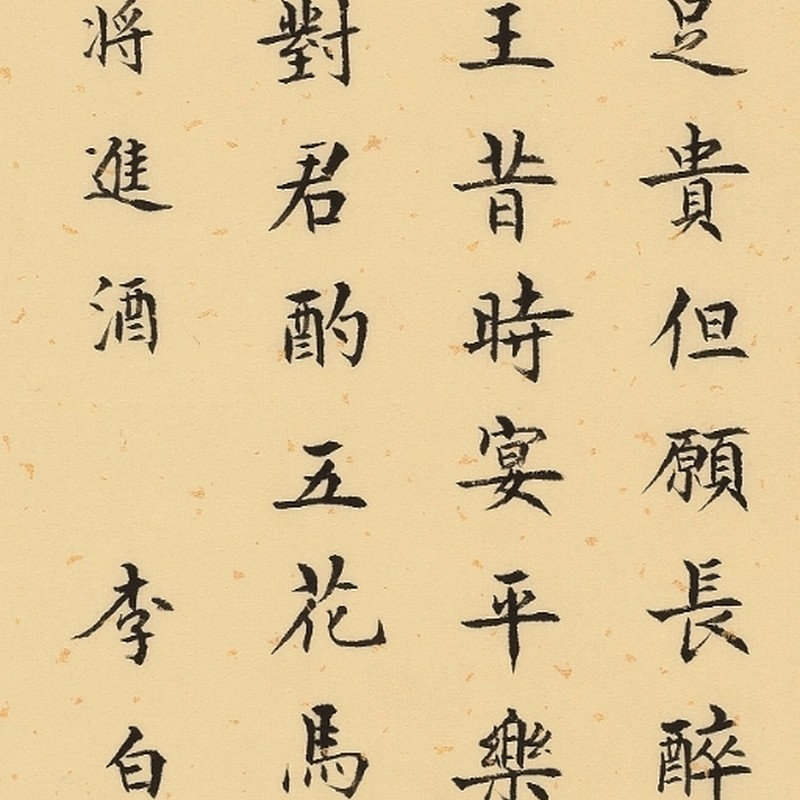 足貴但願長醉
王昔時宴平樂
對君酌五花馬
將進酒 李白